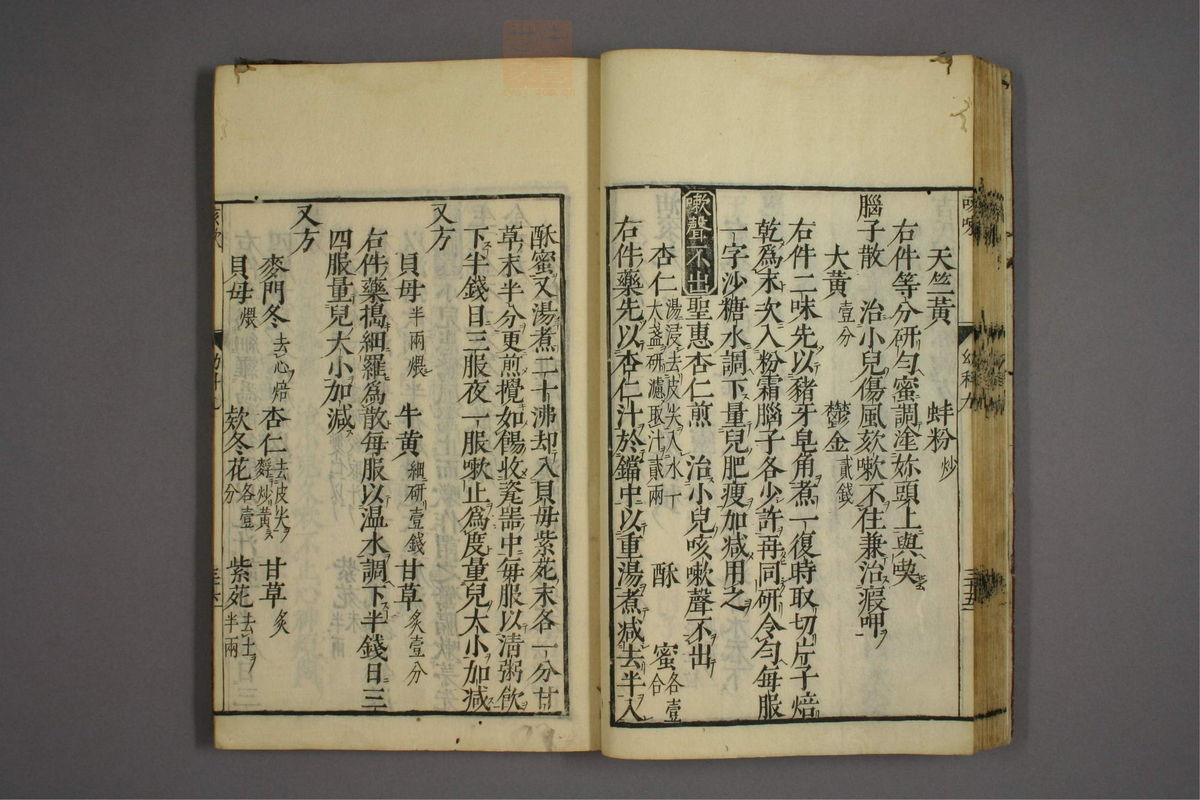 天竺黃 蚌粉炒
右件等分研勻蜜調塗妳頭上與喫
腦子散 治小兒傷風欬嗽不住兼治瘕呷
大黃壹分 鬱金貳錢
右件二味先以豬牙皂角煮一復時取切片子焙
乾爲末次入粉霜腦子各少許再同研令勻每服
一字沙糖水調下量兒肥瘦加减用之
嗽聲不出 聖惠杏仁煎 治小兒咳嗽聲不出
杏仁湯浸去皮尖入水一大盞研濾取汁貳兩 酥 蜜各壹合
右件藥先以杏仁汁於鐺中以重湯煮减去半入
酥蜜又湯煮二十沸却入貝母紫苑末各一分甘
草末半分更煎攪如餳收瓷器中每服以清粥飲
下半錢日三服夜一服嗽止爲度量兒大小加减
又方
貝母半兩煨 牛黃細研壹錢 甘草炙壹分
右件藥搗細羅爲散每服以温水調下半錢日三
四服量兒大小加减
又方
麥門冬去心焙 杏仁去皮尖麩炒黃 甘草炙
貝母煨 欵冬花各壹分 紫苑去土半兩